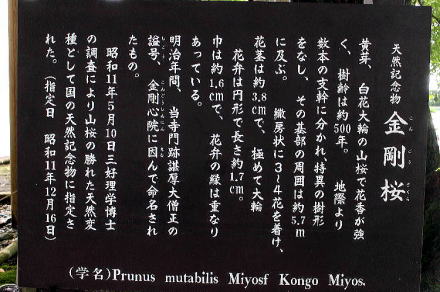 天然記念物 金剛桜
こんごうざくら
黄芽、白花大輪の山桜で花香が強
く、樹齢は約500年。 地際より
数本の支幹に分かれ、特異の樹形
をなし、その基部の周囲は約5.7m
に及ぶ。 繖房状に3〜4花を着け、
花茎は約3.8cmで、極めて大輪
花弁は円形で長さ約1.7cm。
巾は約1.6cmで、花弁の縁は重なり
あっている。
明治年間、当寺門跡諶厚大僧正の
諡号、金剛心院に因んで命名され
たもの。
昭和11年5月10日三好理学博士
の調査により山桜の勝れた天然変
種として国の天然記念物に指定さ
れた。(指定日 昭和11年12月16日)
(学名)Prunus mutabilis Miyosf Kongo Miyos.